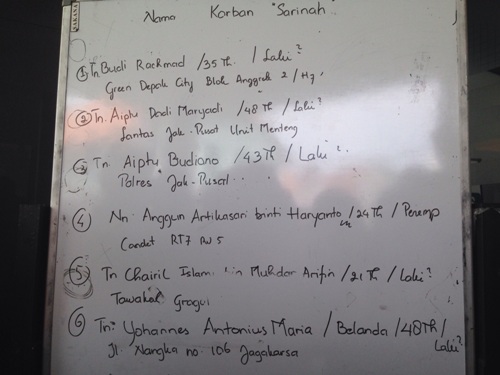 Nama Korban "Sarinah"
① Tn Budi Rachmad / 35 Th. / Laki²
Green Depok City Blok Anggrek 2 / H7
② Tn. Aiptu Dodi Maryadi / 48 Th / Laki²
Lantas Jak-Pusat Unit Menteng
③ Tn Aiptu Budiono / 43 Th / Laki²
Polres Jak-Pusat
④ Nn. Anggun Artikasari binti Haryanto / 24 Th / Peremp
Condet RT7 RW 5
⑤ Tn Chairil Islami bin Mukdar Aripin / 21 Th / Laki²
Tawakal Grogol
⑥ Tn. Yohannes Antonius Maria / Belanda / 48 Th / Laki²
Jl. Nangka no. 106 Jagakarsa